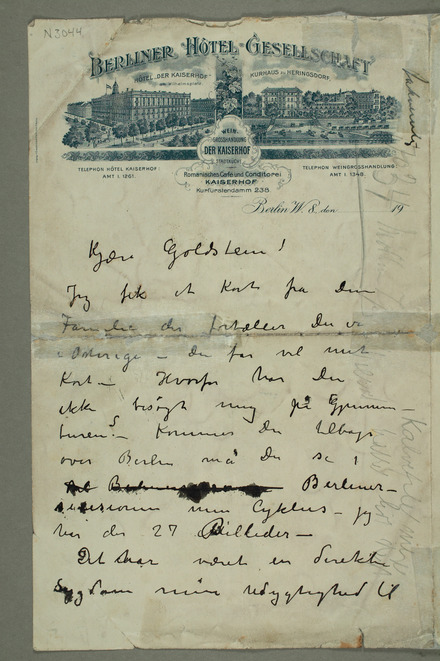 N3044
BERLINER HÔTEL-GESELLSCHAFT
HÔTEL „DER KAISERHOF"
KURHAUS zu HERINGSDORF.
WEIN-
GROSSHANDLUNG
DER KAISERHOF
TELEPHON HÔTEL KAISERHOF:
AMT I. 1261.
TELEPHON WEINGROSSHANDLUNG:
AMT I. 1348.
Romanisches Café und Conditorei
KAISERHOF
Kurfürstendamm 238
Berlin W. 8, den 19
Kjære Goldstein!
Jeg fik et Kort fra din
Familie der fortæller Du er
i Østerige – du har vel mit
Kort – Hvorfor har Du
ikke besøgt mig på
Kommer Du tilbage
over Berlin må Du se i
Berliner-
secessionen min Cyklus – jeg
har der 27 Billeder –
Det har været en direkte
Sygdom min uduygtighed til